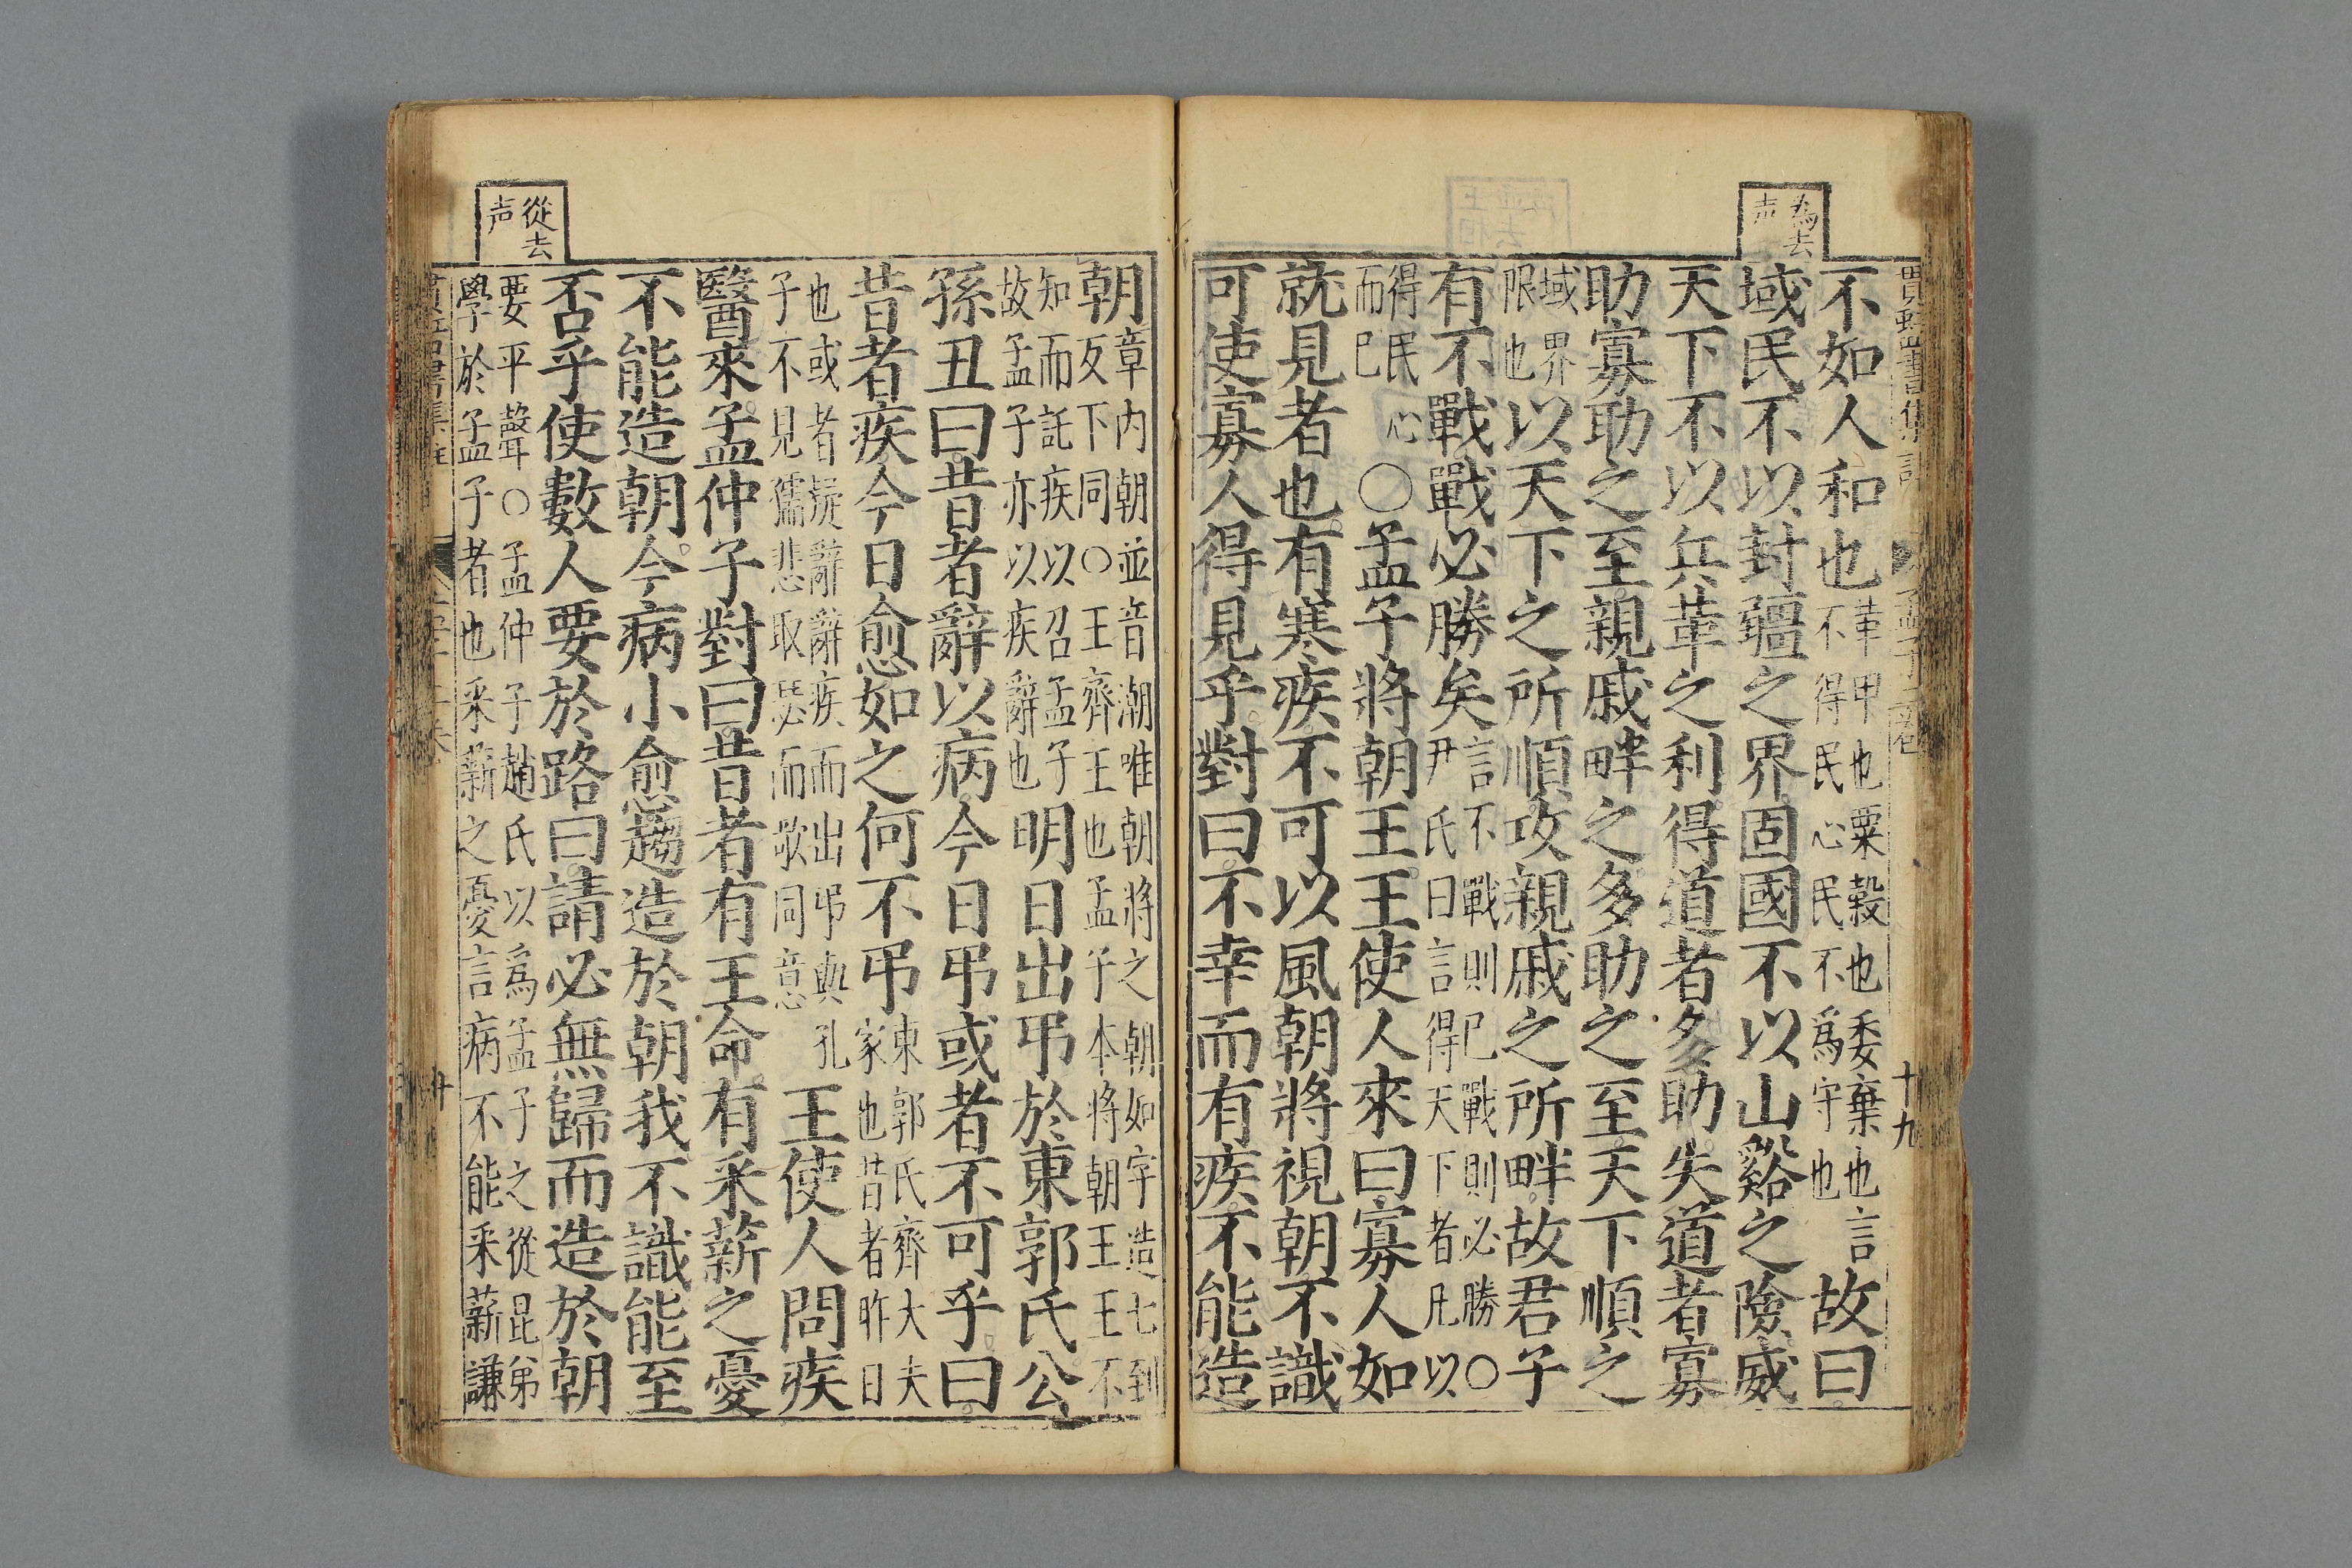 為去
声
不如人和也革甲也粟穀也委棄也言不得民心民不為守也故曰
域民不以封疆之界固國不以山谿之險威
天下不以兵革之利得道者多助失道者寡
助寡助之至親戚畔之多助之至天下順之
域界限也以天下之所順攻親戚之所畔故君子
有不戰戰必勝矣言不戰則已戰則必勝○尹氏曰言得天下者凡以
得民心而已○孟子將朝王王使人來曰寡人如
就見者也有寒疾不可以風朝將視朝不識
可使寡人得見乎對曰不幸而有疾不能造
十九
從去
声
朝章內朝並音潮唯朝將之朝如字造七到反下同○王齊王也孟子本将朝王王不
知而託疾以召孟子故孟子亦以疾辭也明日出弔於東郭氏公
孫丑曰昔者辭以病今日弔或者不可乎曰
昔者疾今日愈如之何不弔東郭氏齊大夫家也昔者昨日
也或者疑辭辭疾而出弔與孔子不見孺悲取瑟而歌同意王使人問疾
醫來孟仲子對曰昔者有王命有采薪之憂
不能造朝今病小愈趨造於朝我不識能至
否乎使數人要於路曰請必無歸而造於朝
要平聲○孟仲子趙氏以為孟子之從昆弟
學於孟子者也采薪之憂言病不能采薪謙